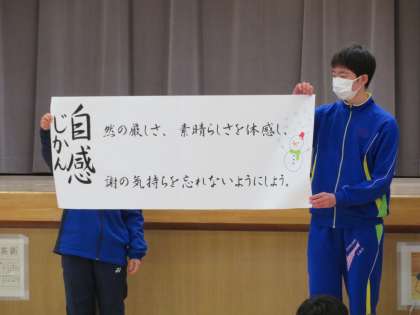 自感
じかん
然の厳しさ、素晴らしさを体感し、
謝の気持ちを忘れないようにしよう。